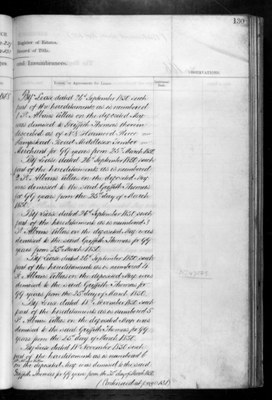 130
Register of Estates,
Record of Title.
and Incumbrances.
OBSERVATIONS.
By Lease dated 26th September 1850 such
part of the hereditaments as is numbered
1 St. Albans Villas on the deposited Map
was demised to Griffith Thomas therein
described as of
Hampstead Road Middlesex Timber
Merchant for 99 years from 25th March 1850.
By Lease dated 26th September 1850 such
part of the hereditaments as is numbered
2 St. Albans Villas on the deposited Map
was demised to the said Griffith Thomas
for 99 years from the 25th day of March
1850.
By Lease dated 26th September 1850 such
part of the hereditaments as is numbered 3
St. Albans Villas on the deposited Map was
demised to the said Griffith Thomas for 99
years from 25th March 1850.
By Lease dated 26th September 1850 such
part of the hereditaments as is numbered 4
St. Albans Villas on the deposited Map was
demised to the said Griffith Thomas for
99 years from the 25th day of March 1850.
By Lease dated 11th November 1850 such
part of the hereditaments as is numbered 5
St. Albans Villas on the deposited Map was
demised to the said Griffith Thomas for 99
years from the 25th day of March 1850.
By Lease dated 11th November 1850 such
part of the hereditaments as is numbered 6
on the deposited Map was demised to the said
Griffith Thomas for 99 years from the 25th day of March 1850.